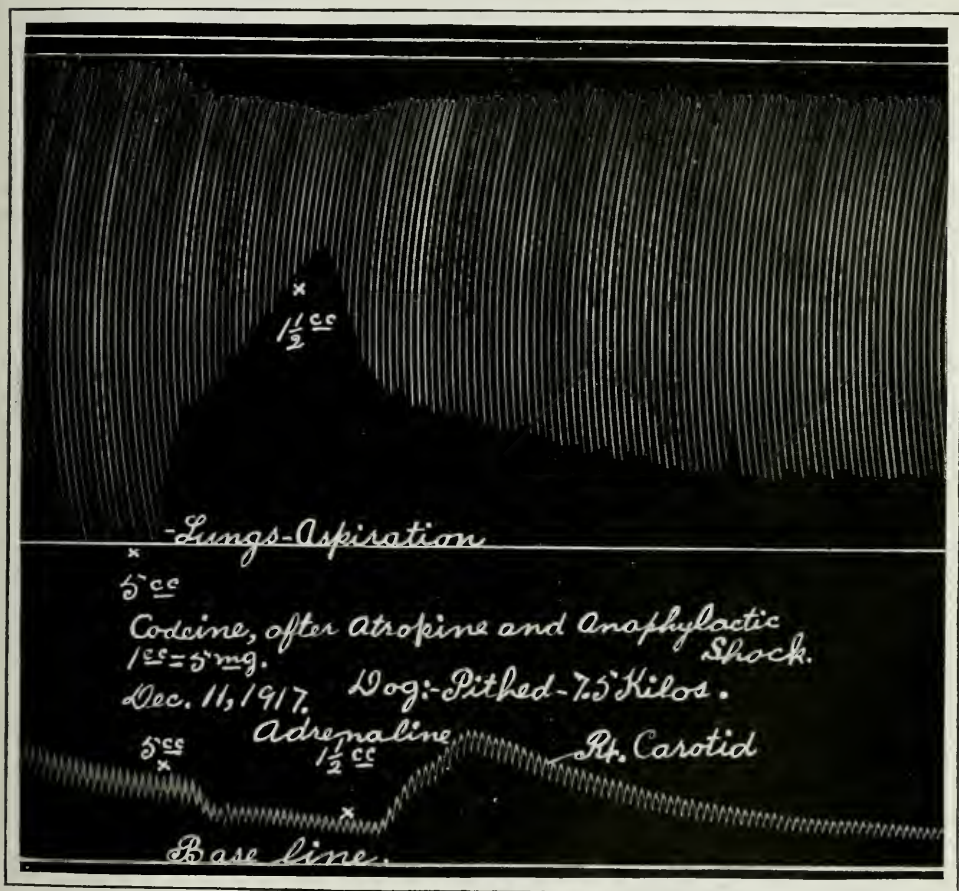 x
1 1/2 cc
-Lungs-Aspiration
x
5 cc
Codeine, after Atropine and Anaphylactic
Shock.
1 cc = 5 mg.
Dec. 11, 1917. Dog:-Pithed-7.5 Kilos.
Adrenaline
5 cc
x
1 1/2 cc
Rt. Carotid
x
Base line.